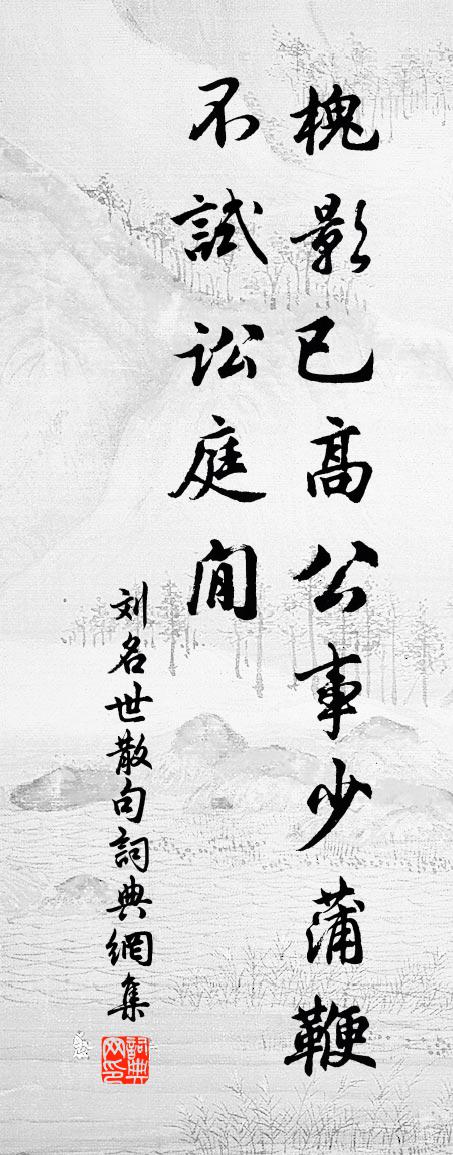 槐影已高公事少蒲鞭
不試訟庭閒
刘名世散句詞典網集
詞典网印